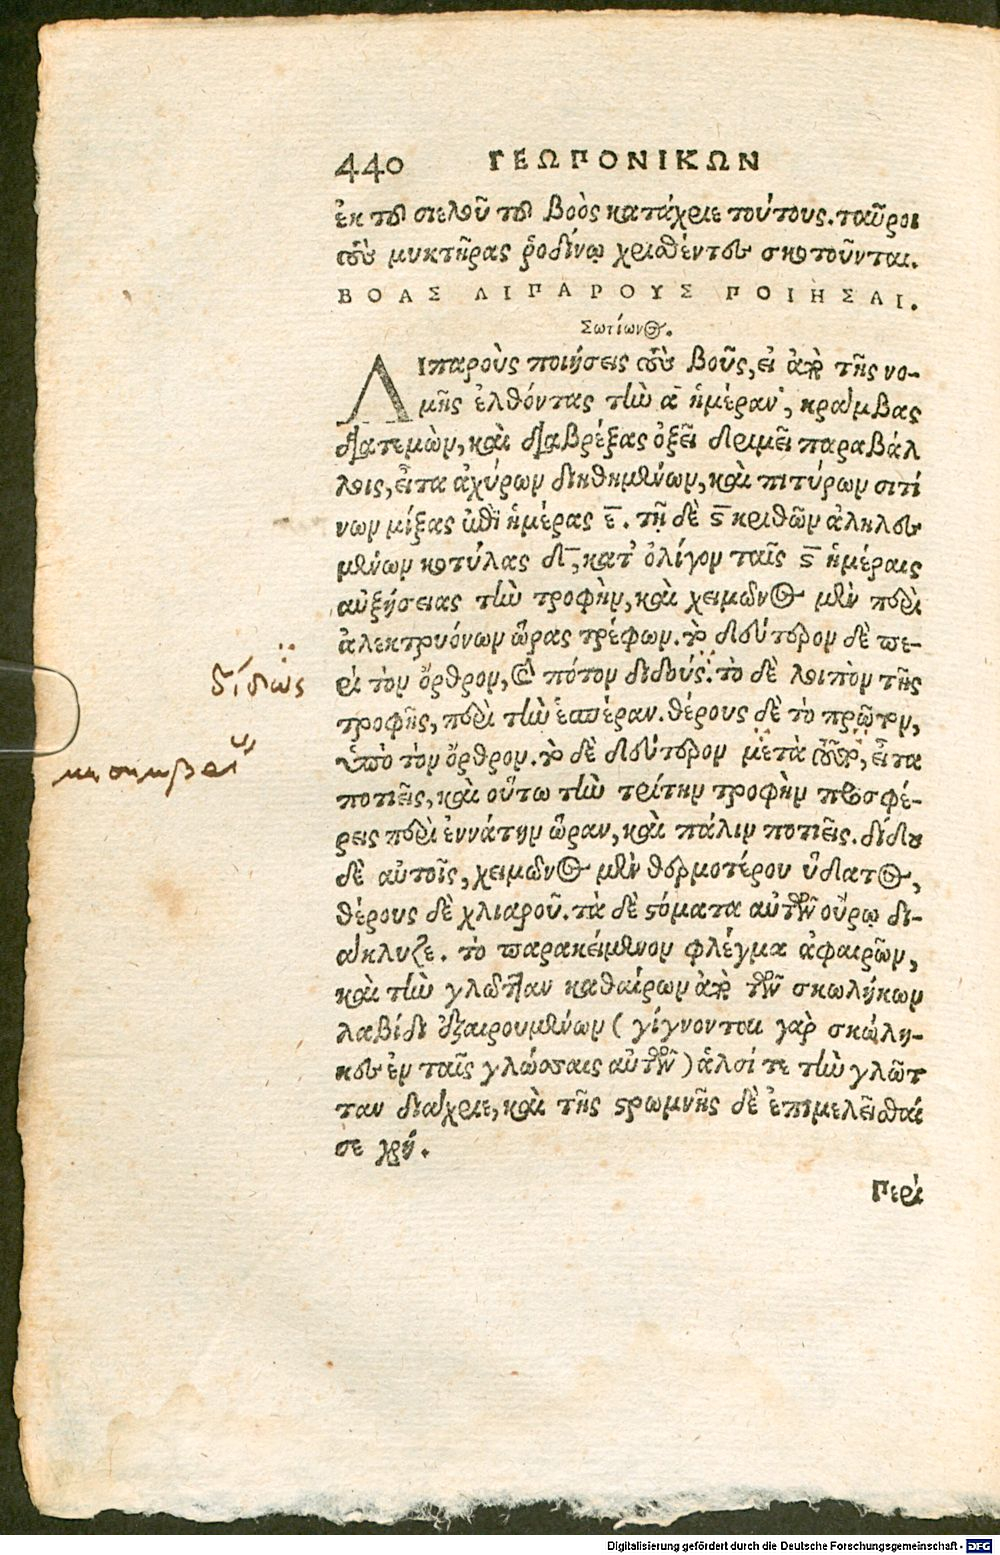 440 ΓΕΩΠΟΝΙΚΩΝ
ἐκ τοῦ σιελοῦ τοῦ βοὸς κατάχριε τούτους. ταῦροι
τοὺς μυκτῆρας ῥοδίνῳ χρισθέντες σκοτοῦνται.
ΒΟΑΣ ΛΙΠΑΡΟΥΣ ΠΟΙΗΣΑΙ.
Σωτίωνος.
ΛΙπαροὺς ποιήσεις τοὺς βοῦς, εἰ ἀπὸ τῆς νο-
μῆς ἐλθόντας τὴν α̅ ἡμέραν, κράμβας
διατεμὼν, καὶ διαβρέξας ὀξεῖ δριμεῖ παραβάλ
λοις, εἶτα ἀχύρων διηθημένων, καὶ πιτύρων σιτί
νων μίξας ἐπὶ ἡμέρας ε̅. τῇ δὲ ϛ̅ κριθῶν ἀληλεσ
μένων κοτύλας δ̅, κατ' ὀλίγον ταῖς ϛ̅ ἡμέραις
αὐξήσειας τὴν τροφὴν, καὶ χειμῶνος μὲν περὶ
ἀλεκτρυόνων ὥρας τρέφων. τὸ δεύτερον δὲ πε-
ρὶ τὸν ὄρθρον, καὶ πότον διδούς. τὸ δὲ λοιπὸν τῆς
δίδως
τροφῆς, περὶ τὴν ἑσπέραν. θέρους δὲ τὸ πρῶτον,
ὑπὸ τὸν ὄρθρον. τὸ δὲ δεύτερον μετὰ τοῦτο, εἶτα
ποτιεῖς, καὶ οὕτω τὴν τρίτην τροφὴν προσφέ-
ρεις περὶ ἐννάτην ὥραν, καὶ πάλιν ποτιεῖς. δίδου
δὲ αὐτοῖς, χειμῶνος μὲν θερμοτέρου ὕδατος,
θέρους δὲ χλιαροῦ. τὰ δὲ στόματα αὐτῶν οὔρῳ δι-
άκλυζε. τὸ παρακείμενον φλέγμα ἀφαιρῶν,
καὶ τὴν γλῶτταν καθαίρων ἀπὸ τῶν σκωλήκων
λαβίδι ἐξαιρουμένων (γίγνονται γὰρ σκώλη-
κες ἐν ταῖς γλώσσαις αὐτῶν) ἁλσί τε τὴν γλῶτ
ταν διάχριε, καὶ τῆς στρωμνῆς δὲ ἐπιμελεῖσθαί
σε χρή.
Περὶ